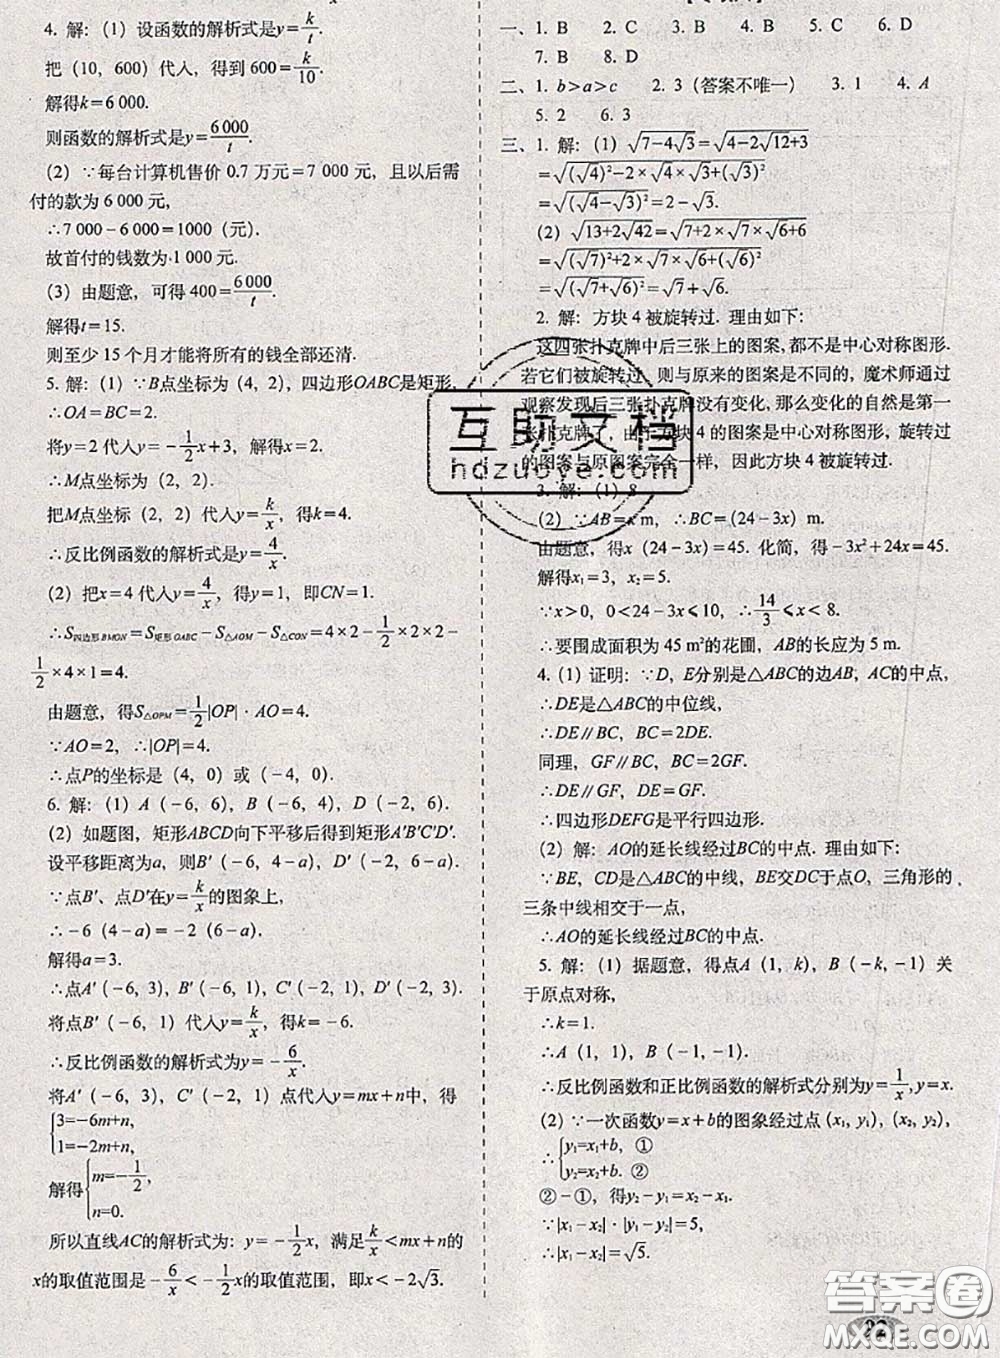 4. 解：（1）设函数的解析式是y=k/t.
把（10，600）代入，得到 600=k/10.
解得k=6 000.
则函数的解析式是y=6 000/t.
（2）∵每台计算机售价 0.7 万元=7 000 元，且以后需
付的款为 6 000 元，
∴7 000-6 000=1000（元）.
故首付的钱数为 1 000 元.
（3）由题意，可得 400=6 000/t.
解得t=15.
则至少 15 个月才能将所有的钱全部还清.
5. 解：（1）∵B点坐标为（4，2），四边形OABC是矩形，
∴OA=BC=2.
将y=2 代入y=-1/2x+3，解得x=2.
∴M点坐标为（2，2）.
把M点坐标（2，2）代入y=k/x，得k=4.
∴反比例函数的解析式是y=4/x.
（2）把x=4 代入y=4/x，得y=1，即CN=1.
∴S四边形BMON=S矩形OABC-S△AOM-S△CON=4×2-1/2×2×2-
1/2×4×1=4.
由题意，得S△OPM=1/2|OP|·AO=4.
∵AO=2，∴|OP|=4.
∴点P的坐标是（4，0）或（-4，0）.
6. 解：（1）A（-6，6），B（-6，4），D（-2，6）.
（2）如题图，矩形ABCD向下平移后得到矩形A′B′C′D′.
设平移距离为a，则B′（-6，4-a），D′（-2，6-a）.
∵点B′、点D′在y=k/x的图象上，
∴-6（4-a）=-2（6-a）.
解得a=3.
∴点A′（-6，3），B′（-6，1），C′（-2，1），D′（-2，3）.
将点B′（-6，1）代入y=k/x，得k=-6.
∴反比例函数的解析式为y=-6/x.
将A′（-6，3），C′（-2，1）点代入y=mx+n中，得
{3=-6m+n,
1=-2m+n,
解得{m=-1/2,
n=0.
所以直线AC的解析式为：y=-1/2x，满足k/x<mx+n的
x的取值范围是-6/x<-1/2x的取值范围，即x<-2√3.
一、1. A 2. C 3. A 4. B 5. C 6. D
7. B 8. D
二、1. b>a>c 2. 3（答案不唯一） 3. 1 4. A
5. 2 6. 3
三、1. 解：（1）√(7-4√3)=√(4-2√12+3)
=√((√4)²-2×√4×√3+(√3)²)
=√((√4-√3)²)=2-√3.
（2）√(13+2√42)=√(7+2×√7×√6+6)
=√((√7)²+2×√7×√6+(√6)²)
=√((√7+√6)²)=√7+√6.
2. 解：方块 4 被旋转过. 理由如下：
这四张扑克牌中后三张上的图案，都不是中心对称图形.
若它们被旋转过，则与原来的图案是不同的，魔术师通过
观察发现后三张扑克牌没有变化，那么变化的自然是第一
张扑克牌了，由于方块 4 的图案是中心对称图形，旋转过
的图案与原图案完全一样，因此方块 4 被旋转过.
3. 解：（1）8
（2）∵AB=x m，∴BC=(24-3x) m.
由题意，得x（24-3x）=45. 化简，得-3x²+24x=45.
解得x₁=3，x₂=5.
∵x>0，0<24-3x≤10，∴14/3≤x<8.
∴要围成面积为 45 m²的花圃，AB的长应为 5 m.
4.（1）证明：∵D，E分别是△ABC的边AB，AC的中点，
∴DE是△ABC的中位线，
∴DE∥BC，BC=2DE.
同理，GF∥BC，BC=2GF.
∴DE∥GF，DE=GF.
∴四边形DEFG是平行四边形.
（2）解：AO的延长线经过BC的中点. 理由如下：
∵BE，CD是△ABC的中线，BE交CD于点O，三角形的
三条中线相交于一点，
∴AO的延长线经过BC的中点.
5. 解：（1）据题意，得点A（1，k），B（-k，-1）关
于原点对称，
∴k=1.
∴A（1，1），B（-1，-1）.
∴反比例函数和正比例函数的解析式分别为y=1/x, y=x.
（2）∵一次函数y=x+b的图象经过点 (x₁, y₁)，(x₂, y₂)，
∴{y₁=x₁+b, ①
y₂=x₂+b. ②
②-①，得y₂-y₁=x₂-x₁.
∵|x₁-x₂|·|y₁-y₂|=5,
∴|x₁-x₂|=√5.
互助文档
hdzuoye.com
答案圈
MXQE.COM